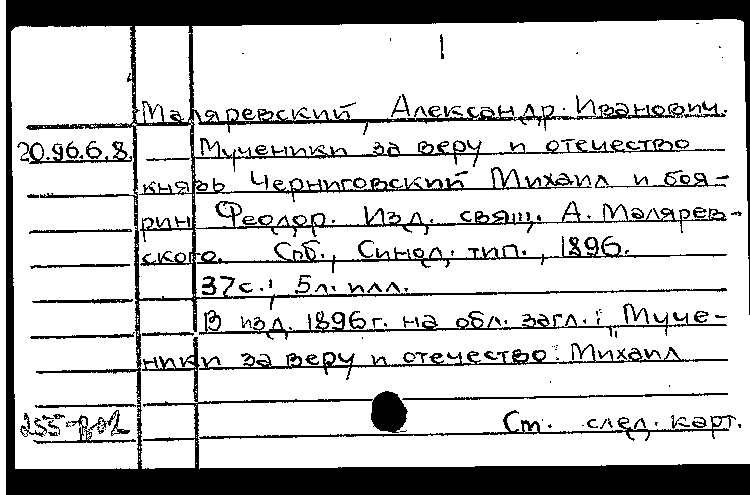 Маляревский, Александр Иванович.
20.96.6.8. Мученики за веру и отечество
князь Черниговский Михаил и боя-
рин Феодор. Изд. свящ. А. Малярев-
ского. Спб., Синод. тип., 1896.
37с.; 5л. илл.
В изд. 1896г. на обл. загл.: "Муче-
ники за веру и отечество: Михаил
См. след. карт.